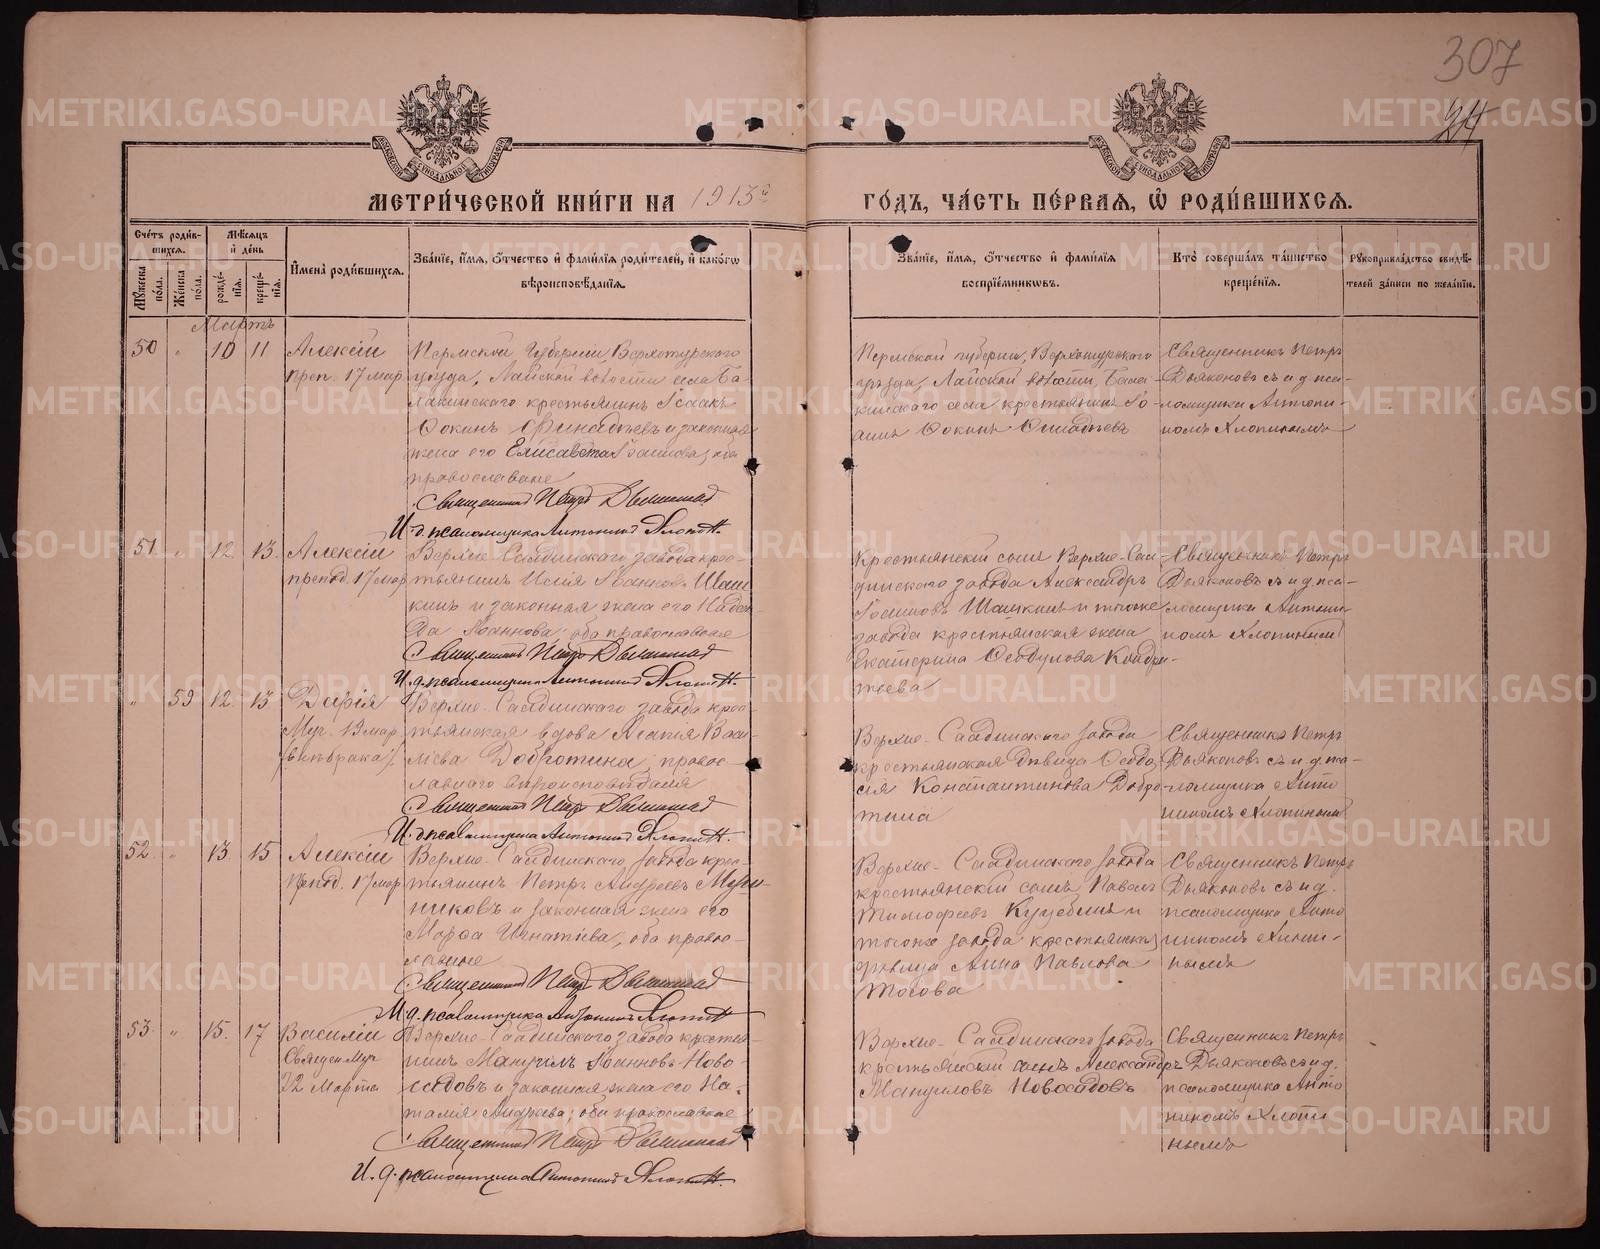 307
24
МЕТРИЧЕСКОЙ КНИГИ НА 1913й ГОДЪ, ЧАСТЬ ПЕРВАЯ, Ѿ РОДИВШИХСЯ.
Счетъ родившихся.
Мужеска пола.
Женска пола.
Мѣсяцъ и день
рожденія.
крещенія.
Имена родившихся.
Званіе, имя, отчество и фамилія родителей, и какогѡ вѣроисповѣданія.
Званіе, имя, отчество и фамилія воспріемниковъ.
Кто совершалъ таинство крещенія.
Рукоприкладство свидѣтелей записи по желанію.
Мартъ
50 " 10 11
Алексій
преп. 17 мар
Пермской губерніи, Верхотурскаго
уѣзда, Лайской волости села Ба-
лакинскаго крестьянинъ Ісаакъ
жена его Елисавета Іоаннова, оба
православные
Священникъ Петръ Дьяконовъ
И. д. псаломщика Антонинъ Хлопинъ
Пермской губерніи, Верхотурскаго
уѣзда, Лайской волости, Бала-
кинскаго села крестьянинъ Іо-
Священникъ Петръ
Дьяконовъ съ и. д. пса-
ломщика Антони-
номъ Хлопинымъ
51 " 12 13
Алексій
препод. 17 мар
Верхне-Салдинскаго завода крес-
тьянинъ Илія Іоанновъ Шаш-
кинъ и законная жена его Надеж-
да Іоаннова, оба православные
Священникъ Петръ Дьяконовъ
И. д. псаломщика Антонинъ Хлопинъ
Крестьянскій сынъ Верхне-Сал-
динскаго завода Александръ
Іоанновъ Шашкинъ и тогоже
завода крестьянская жена
Екатерина Ѳеодулова Кондра-
тьева
Священникъ Петръ
Дьяконовъ съ и. д. пса-
ломщика Антони-
номъ Хлопинымъ
" 59 12 13
Дарія
Муч. 19 мар
/внѣ брака/
Верхне-Салдинскаго завода крес-
тьянская вдова Агапія Васи-
льева Добротина, право-
славнаго вѣроисповѣданія
Священникъ Петръ Дьяконовъ
И. д. псаломщика Антонинъ Хлопинъ
Верхне-Салдинскаго завода
крестьянская дѣвица Ѳеодо-
сія Константинова Добро-
тина
Священникъ Петръ
Дьяконовъ съ и. д. пса-
ломщика Анто
ниномъ Хлопинымъ
52 " 13 15
Алексій
Препод. 17 мар
Верхне-Салдинскаго завода крес-
тьянинъ Петръ Андреевъ
и законная жена его
Марѳа Игнатіева, оба право-
славные
Священникъ Петръ Дьяконовъ
И. д. псаломщика Антонинъ Хлопинъ
Верхне-Салдинскаго завода
крестьянскій сынъ Павелъ
Тимофеевъ и
тогоже завода крестьянская
дѣвица Анна Павлова
Священникъ Петръ
Дьяконовъ съ и. д.
псаломщика Анто
ниномъ Хлопи-
нымъ
53 " 15 17
Василій
Священ муч
22 Марта
Верхне-Салдинскаго завода крестья-
нинъ Мануилъ Іоанновъ Ново-
садовъ и законная жена его На-
талія Андреева, оба православные
Священникъ Петръ Дьяконовъ
И. д. псаломщика Антонинъ Хлопинъ
Верхне-Салдинскаго завода
крестьянскій сынъ Александръ
Мануиловъ Новосадовъ
Священникъ Петръ
Дьяконовъ съ и. д.
псаломщика Анто
ниномъ Хлопи
нымъ
METRIKI.GASO-URAL.RU